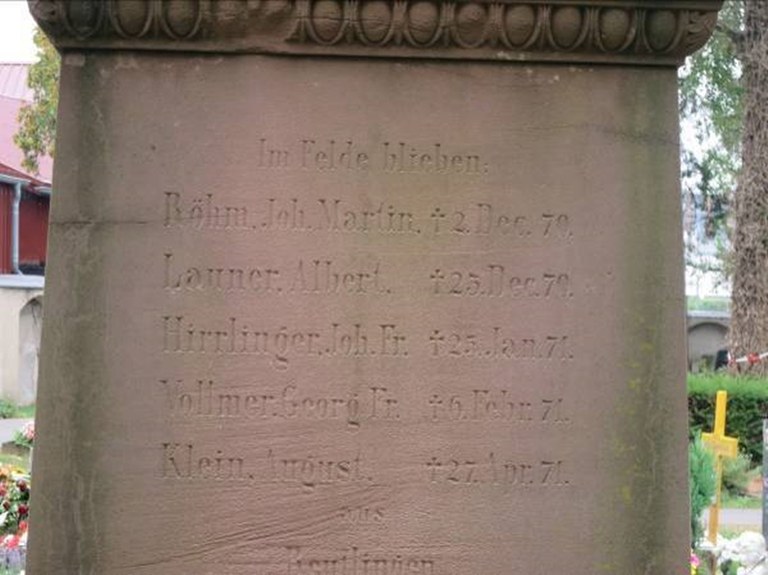 Im Felde blieben:
Röhm, Joh. Martin, † 2. Dec. 70.
Launer, Albert, † 25. Dec. 70.
Hirrlinger, Joh. Fr. † 25. Jan. 71.
Vollmer, Georg Fr. † 6. Febr. 71.
Klein, August, † 27. Apr. 71.
aus
Reutlingen